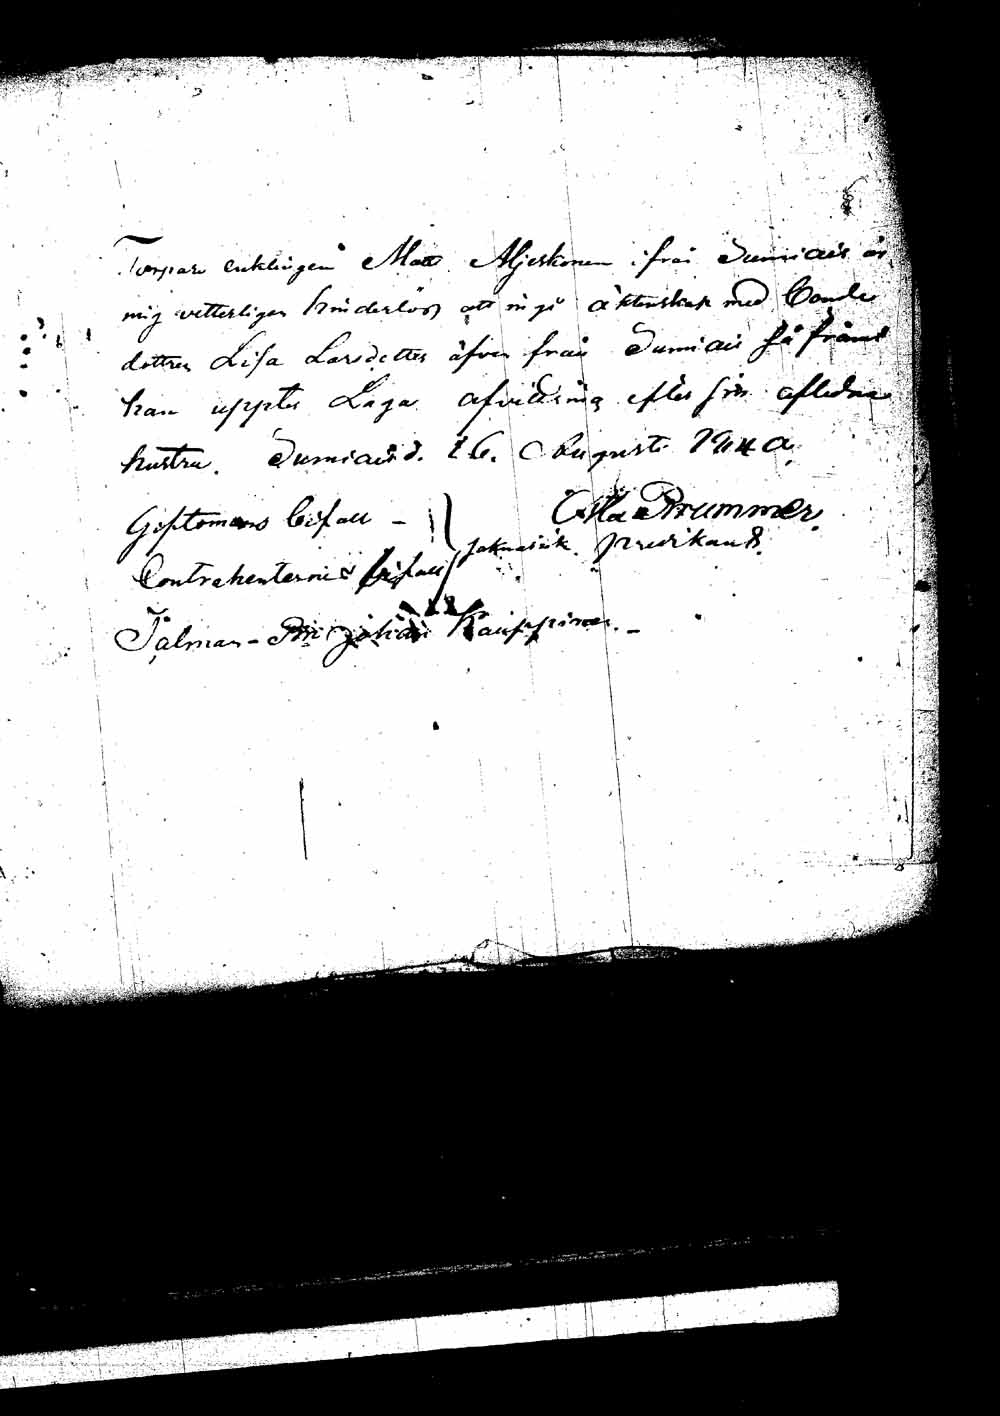 Torpare enklingen Matts Mjeskonen ifrån Sumiais är
mig vetterligen hinderlös att ingå äktenskap med Bonde
dottren Lisa Larsdotter äfven från Sumiais så framt
han uppter Laga afvittring efter sin aflidna
hustru. Sumiais d. 16. Augusti
Giftomans bifall -
Brummer.
Contrahenternes bifall
saknas icke. predikant.
Talman - Johan Kauppinen. -